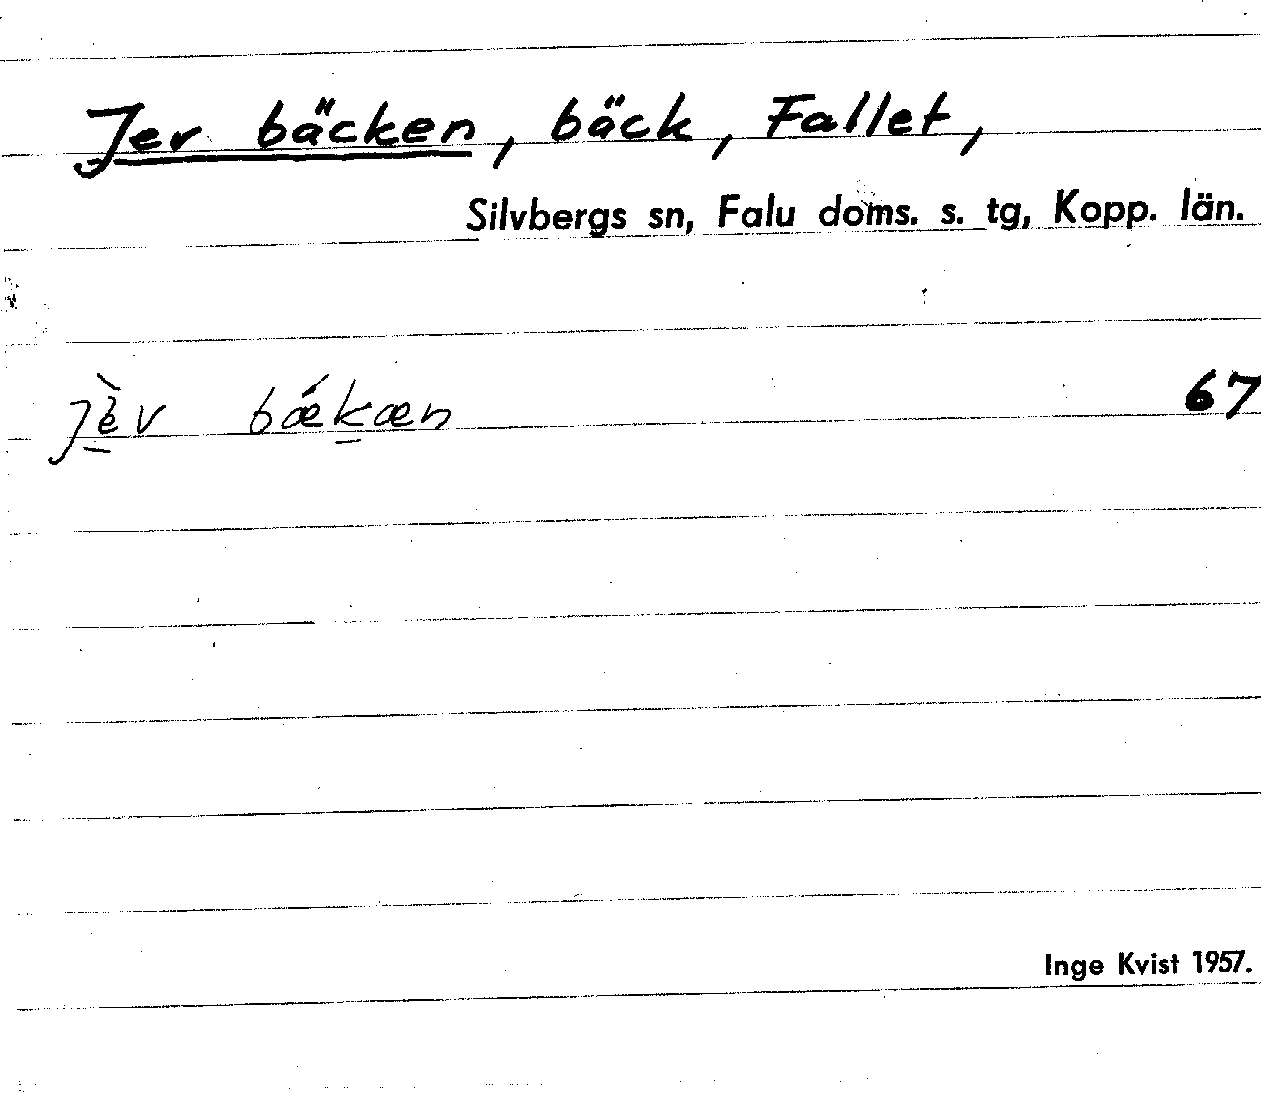 Jer bäcken, bäck, Fallet,
Silvbergs sn, Falu doms. s. tg, Kopp. län.
jè̱v bǽḵæn 67
Inge Kvist 1957.